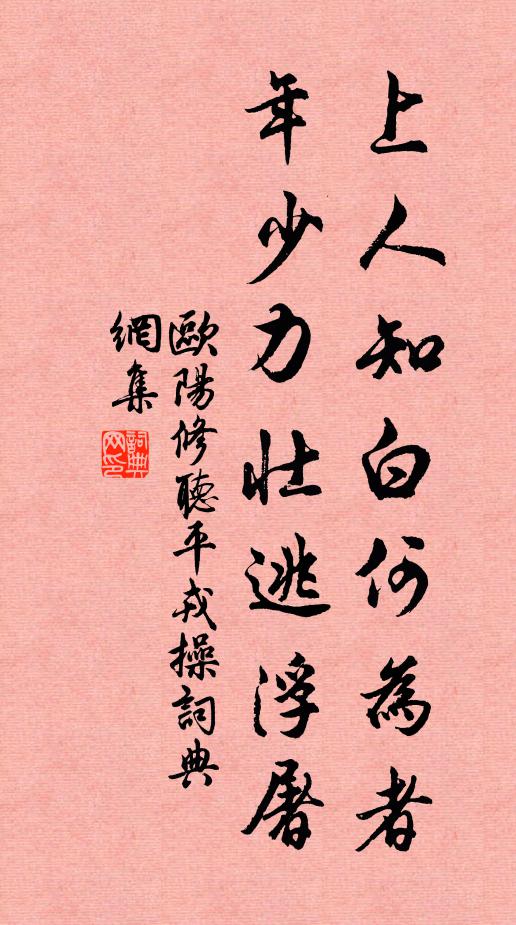 上人知白何為者
年少力壯逃浮屠
歐陽修聽平戎操詞典
網集
詞典
網印